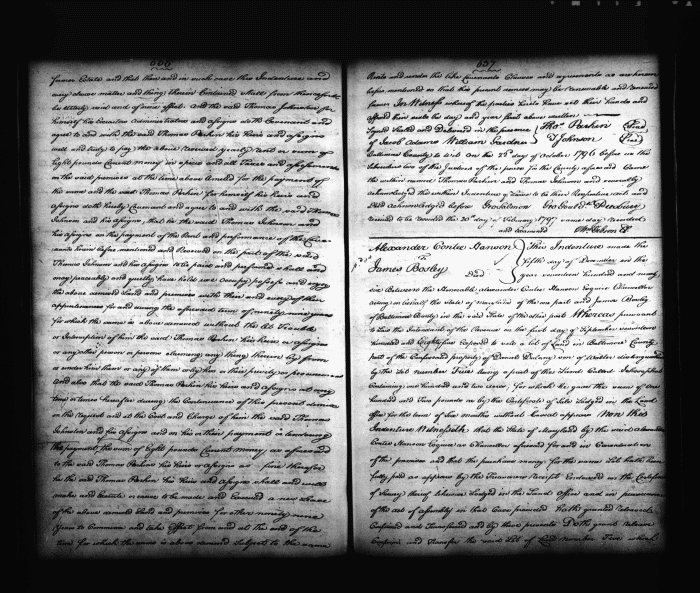 636
former Estate and that then and in such case this Indenture and
every clause matter and thing therein Contained shall from thenceforth
be utterly void and of none effect And the said Thomas Johnson for
himself his Executors Administrators and Assigns doth Covenant and
agree to and with the said Thomas Parkin his Heirs and assigns
well and truly to pay the above reserved yearly Rent or sum of
Eight pounds Current money in specie and all Taxes and
on the said premises at the time above limited for the payment of
the same and the said Thomas Parkin for himself his Heirs and
Assigns doth hereby Covenant and agree to and with the said Thomas
Johnson and his Assigns that he the said Thomas Johnson and
his Assigns on the payment of the Rent and performance of the Cove
nants herein before mentioned and Reserved on the part of the said
Thomas Johnson and his Assigns to be paid and performed shall and
may peaceably and quietly have hold use Occupy possess and enjoy
the above demised Land and premises with their and every of their
appurtenances for and during the aforesaid term of ninety nine years
for which the same is above demised without the Let Trouble
or Interruption of him the said Thomas Parkin his heirs or Assigns
or any other person or persons claiming any thing therein by from
or under him them or any of them or by his or their privity or procurement
And also that the said Thomas Parkin his Heirs and Assigns at any
time or times hereafter during the Continuance of this present demise
on the Request and at the Cost and Charges of him the said Thomas
Johnson and his Assigns and on his or their payment or tendering
the payment the sum of Eight pounds Current money as aforesaid
to the said Thomas Parkin his Heirs or Assigns as a fine therefor
he the said Thomas Parkin his Heirs and Assigns shall and will
make and Execute or cause to be made and Executed a new Lease
of the above demised Land and premises for other ninety nine
Years to Commence and take Effect from and at the end of the
term for which the same is above demised Subject to the same
637
Rents and under the like Covenants Clauses and agreements as are herein
before mentioned so that this present demise may be renewable and renewed
forever In Witness whereof the parties hereto have set their hands and
affixed their seals the day and year first above written
Signed Sealed and Delivered in the presence Thos. Parkin Seal
of Jacob Adams William Gardner T Johnson Seal
Baltimore County to wit on the 28th day of October 1796 before us the
Subscribers two of the Justices of the peace for the County aforesaid Came
the within named Thomas Parkin and Thomas Johnson and severally
acknowledged the within Instrument of Lease to be their Respective Act and
Deed Acknowledged before Geo Salmon
received to be recorded the 20th day of February 1797 same day recorded
and Examined Wm Gibson Clk
Alexander Contee Hanson
to
James Bosley
Deed
This Indenture made the
fifth day of December in the
year seventeen hundred and ninety
six Between the Honorable Alexander Contee Hanson Esquire Chancellor
acting in behalf the State of Maryland of the one part and James Bosley
of Baltimore County in the said State of the other part Whereas pursuant
to Law the Intendant of the Revenue on the first day of September seventeen
hundred and Eighty five exposed to sale a lot of Land in Baltimore County
part of the Confiscated property of Daniel Dulany son of Walter distinguished
by the Lot number Five being a part of the Tract Called
Containing one hundred and two acres, for which he gave the sum of one
hundred and Two pounds as by the Certificate of Sale Lodged in the Land
Office for the term of six months without Caveat appears Now this
Indenture Witnesseth that the State of Maryland by the said Alexander
Contee Hanson Esquire as Chancellor aforesaid for and in Consideration
of the premises and that the purchase money for the same Lot hath been
fully paid as appears by the Treasurers Receipt Endorsed on the Certificate
of Survey thereof likewise Lodged in the Land Office and in pursuance
of the act of Assembly in that Case provided hath granted Released
Confirmed and Transferred and by these presents Doth grant release
Confirm and transfer the said Lot of Land Number Five which